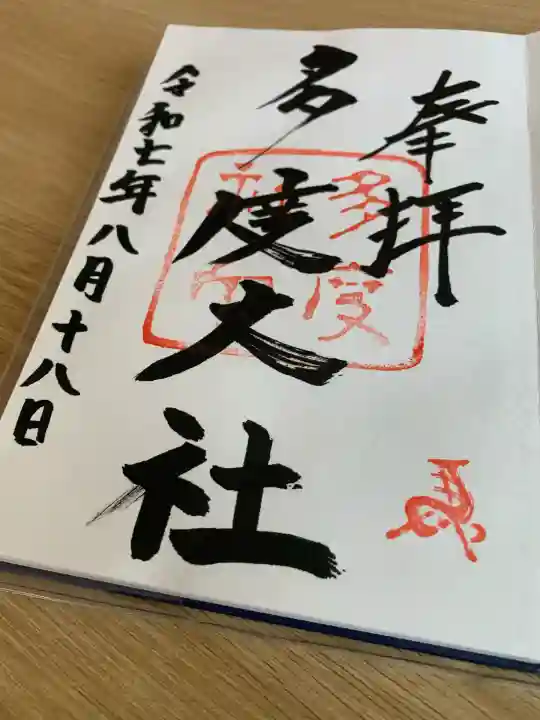 奉拝
多度大社
令和七年八月十八日
多度
馬